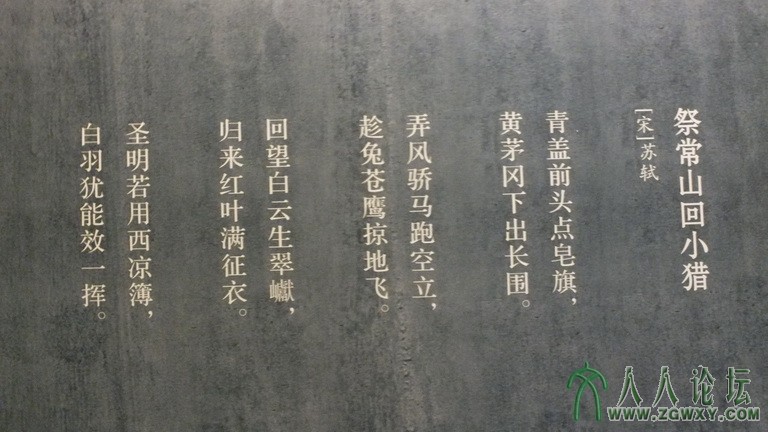 祭常山回小猎
[宋]苏轼
青盖前头点皂旗，
黄茅冈下出长围。
弄风骄马跑空立，
趁兔苍鹰掠地飞。
回望白云生翠巘，
归来红叶满征衣。
圣明若用西凉簿，
白羽犹能效一挥。
人人论坛
WWW.ZGWXY.COM